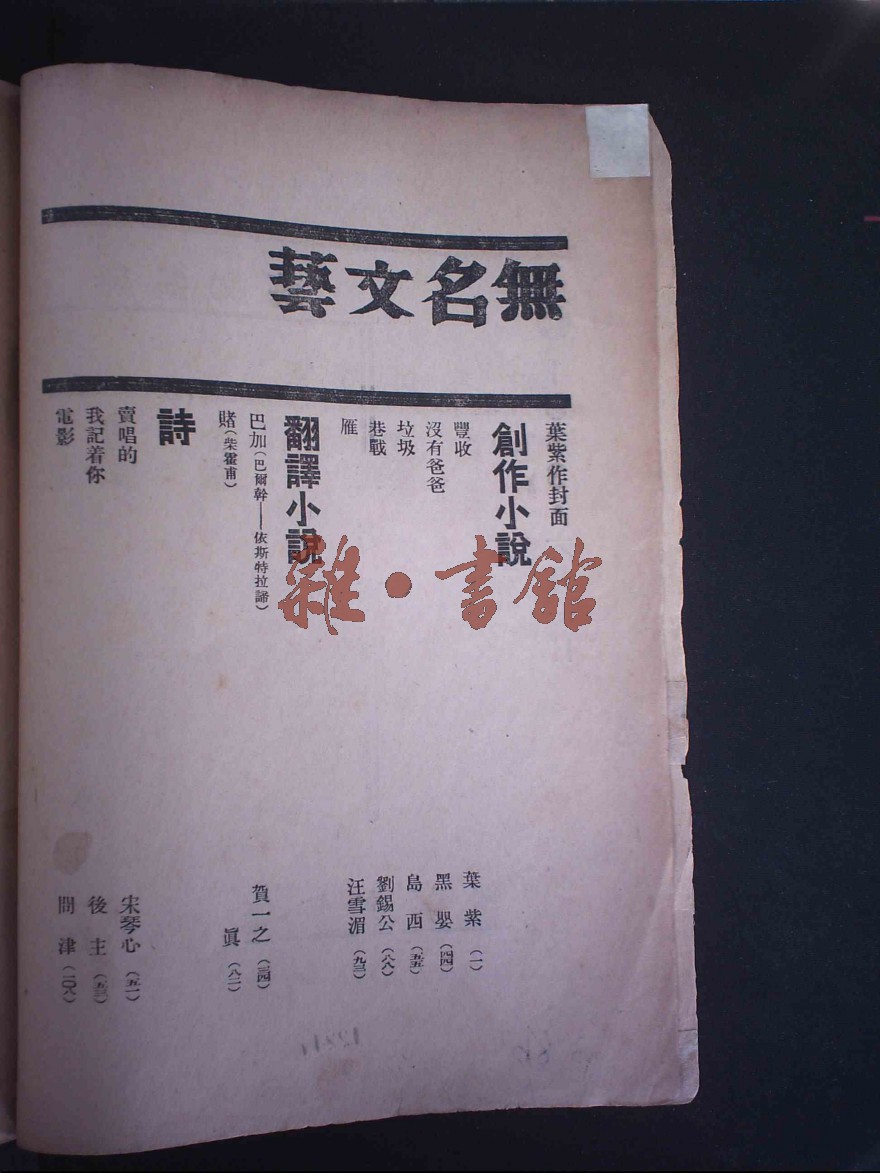 無名文藝
葉紫作封面
創作小說
豐收 葉紫（一）
沒有爸爸 黑嬰（四四）
垃圾 島西（五五）
巷戰 劉錫公（八八）
雁 汪雪湄（九三）
翻譯小說
巴加（巴爾幹——依斯特拉諦） 賀一之（三四）
賭（柴霍甫） 眞（八二）
詩
賣唱的 宋琴心（五一）
我記着你 後主（五三）
電影 問津（一〇八）
雜·書館